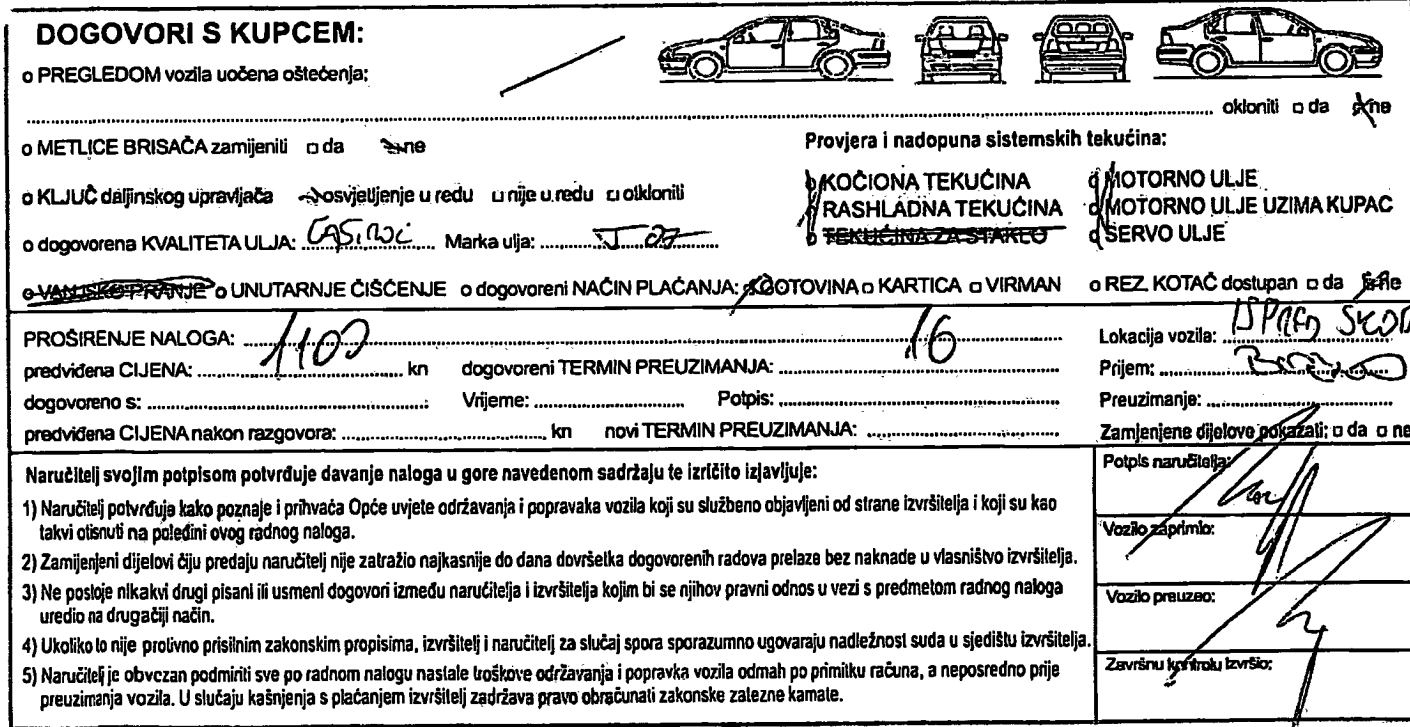 DOGOVORI S KUPCEM:
o PREGLEDOM vozila uočena oštećenja:
okloniti □ da □ ne
o METLICE BRISAČA zamijeniti □ da □ ne
Provjera i nadopuna sistemskih tekućina:
o KLJUČ daljinskog upravljača □ osvjetljenje u redu □ nije u redu □ otkloniti
o KOČIONA TEKUĆINA
o MOTORNO ULJE
o RASHLADNA TEKUĆINA
o MOTORNO ULJE UZIMA KUPAC
o dogovorena KVALITETA ULJA: Marka ulja:
o TEKUĆINA ZA STAKLO
o SERVO ULJE
o VANJSKO PRANJE o UNUTARNJE ČIŠĆENJE o dogovoreni NAČIN PLAĆANJA: □ GOTOVINA □ KARTICA □ VIRMAN o REZ. KOTAČ dostupan □ da □ ne
PROŠIRENJE NALOGA:
Lokacija vozila: ISPRED
predviđena CIJENA: 1100 kn dogovoreni TERMIN PREUZIMANJA: 16
Prijem:
dogovoreno s: Vrijeme: Potpis:
Preuzimanje:
predviđena CIJENA nakon razgovora: kn novi TERMIN PREUZIMANJA:
Zamjenjene dijelove pokazati: □ da □ ne
Naručitelj svojim potpisom potvrđuje davanje naloga u gore navedenom sadržaju te izričito izjavljuje:
1) Naručitelj potvrđuje kako poznaje i prihvaća Opće uvjete održavanja i popravaka vozila koji su službeno objavljeni od strane izvršitelja i koji su kao
takvi otisnuti na poleđini ovog radnog naloga.
2) Zamijenjeni dijelovi čiju predaju naručitelj nije zatražio najkasnije do dana dovršetka dogovorenih radova prelaze bez naknade u vlasništvo izvršitelja.
3) Ne postoje nikakvi drugi pisani ili usmeni dogovori između naručitelja i izvršitelja kojim bi se njihov pravni odnos u vezi s predmetom radnog naloga
uredio na drugačiji način.
4) Ukoliko to nije protivno prisilnim zakonskim propisima, izvršitelj i naručitelj za slučaj spora sporazumno ugovaraju nadležnost suda u sjedištu izvršitelja.
5) Naručitelj je obvezan podmiriti sve po radnom nalogu nastale troškove održavanja i popravka vozila odmah po primitku računa, a neposredno prije
preuzimanja vozila. U slučaju kašnjenja s plaćanjem izvršitelj zadržava pravo obračunati zakonske zatezne kamate.
Potpis naručitelja:
Vozilo zaprimio:
Vozilo preuzeo:
Završnu kontrolu izvršio: